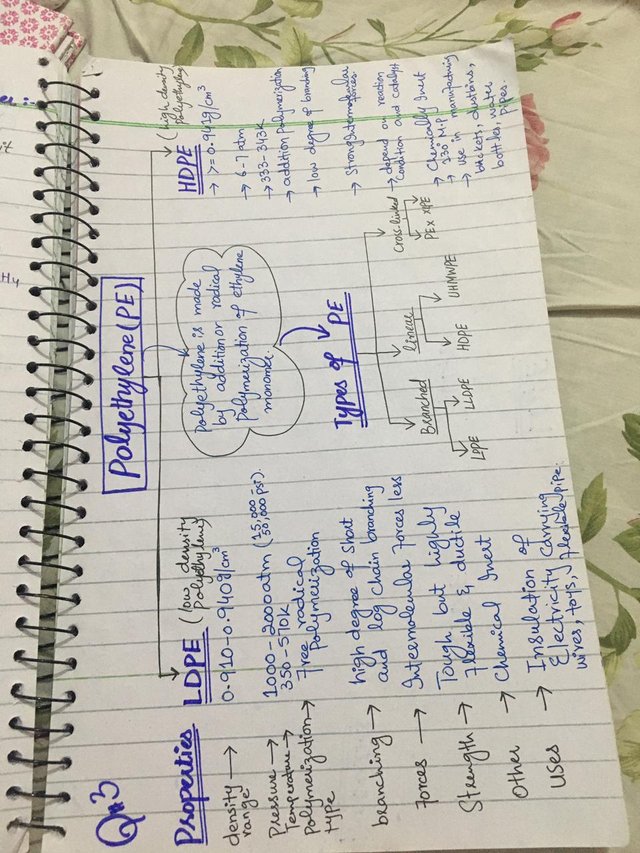 Qn3
Polyethylene(PE)
Properties
LDPE (low density
Polyethylene)
HDPE (high density
Polyethylene)
density →
range
0.910-0.940g/cm³
→ >=0.941g/cm³
Pressure →
1000-2000atm (15,000-
50,000 psi).
→ 6-7 atm
Temperature →
350-570K
→ 333-343K
Polymerization →
type
Free radical
Polymerization
→ addition Polymerization
branching →
high degree of Short
and log chain branching
→ low degree of branching
Forces →
Intermolecular Forces less
→ Strong Intermolecular
forces
Strength →
Tough but highly
Flexible & ductile
→ depend on reaction
Condition and catalyst
Other →
Chemical Inert
→ Chemically Inert
→ 130 M.P
uses →
Insulation of
Electricity Carrying
wires, toys, Flexible pipe.
→ use in manufacturing
buckets, dustbins,
bottles, water
Pipes.
Polyethylene is made
by addition or radical
Polymerization of ethylene
monomer.
Types of PE
Branched
linear
Cross-linked
LDPE
LLDPE
HDPE
UHMWPE
PEX
XLPE